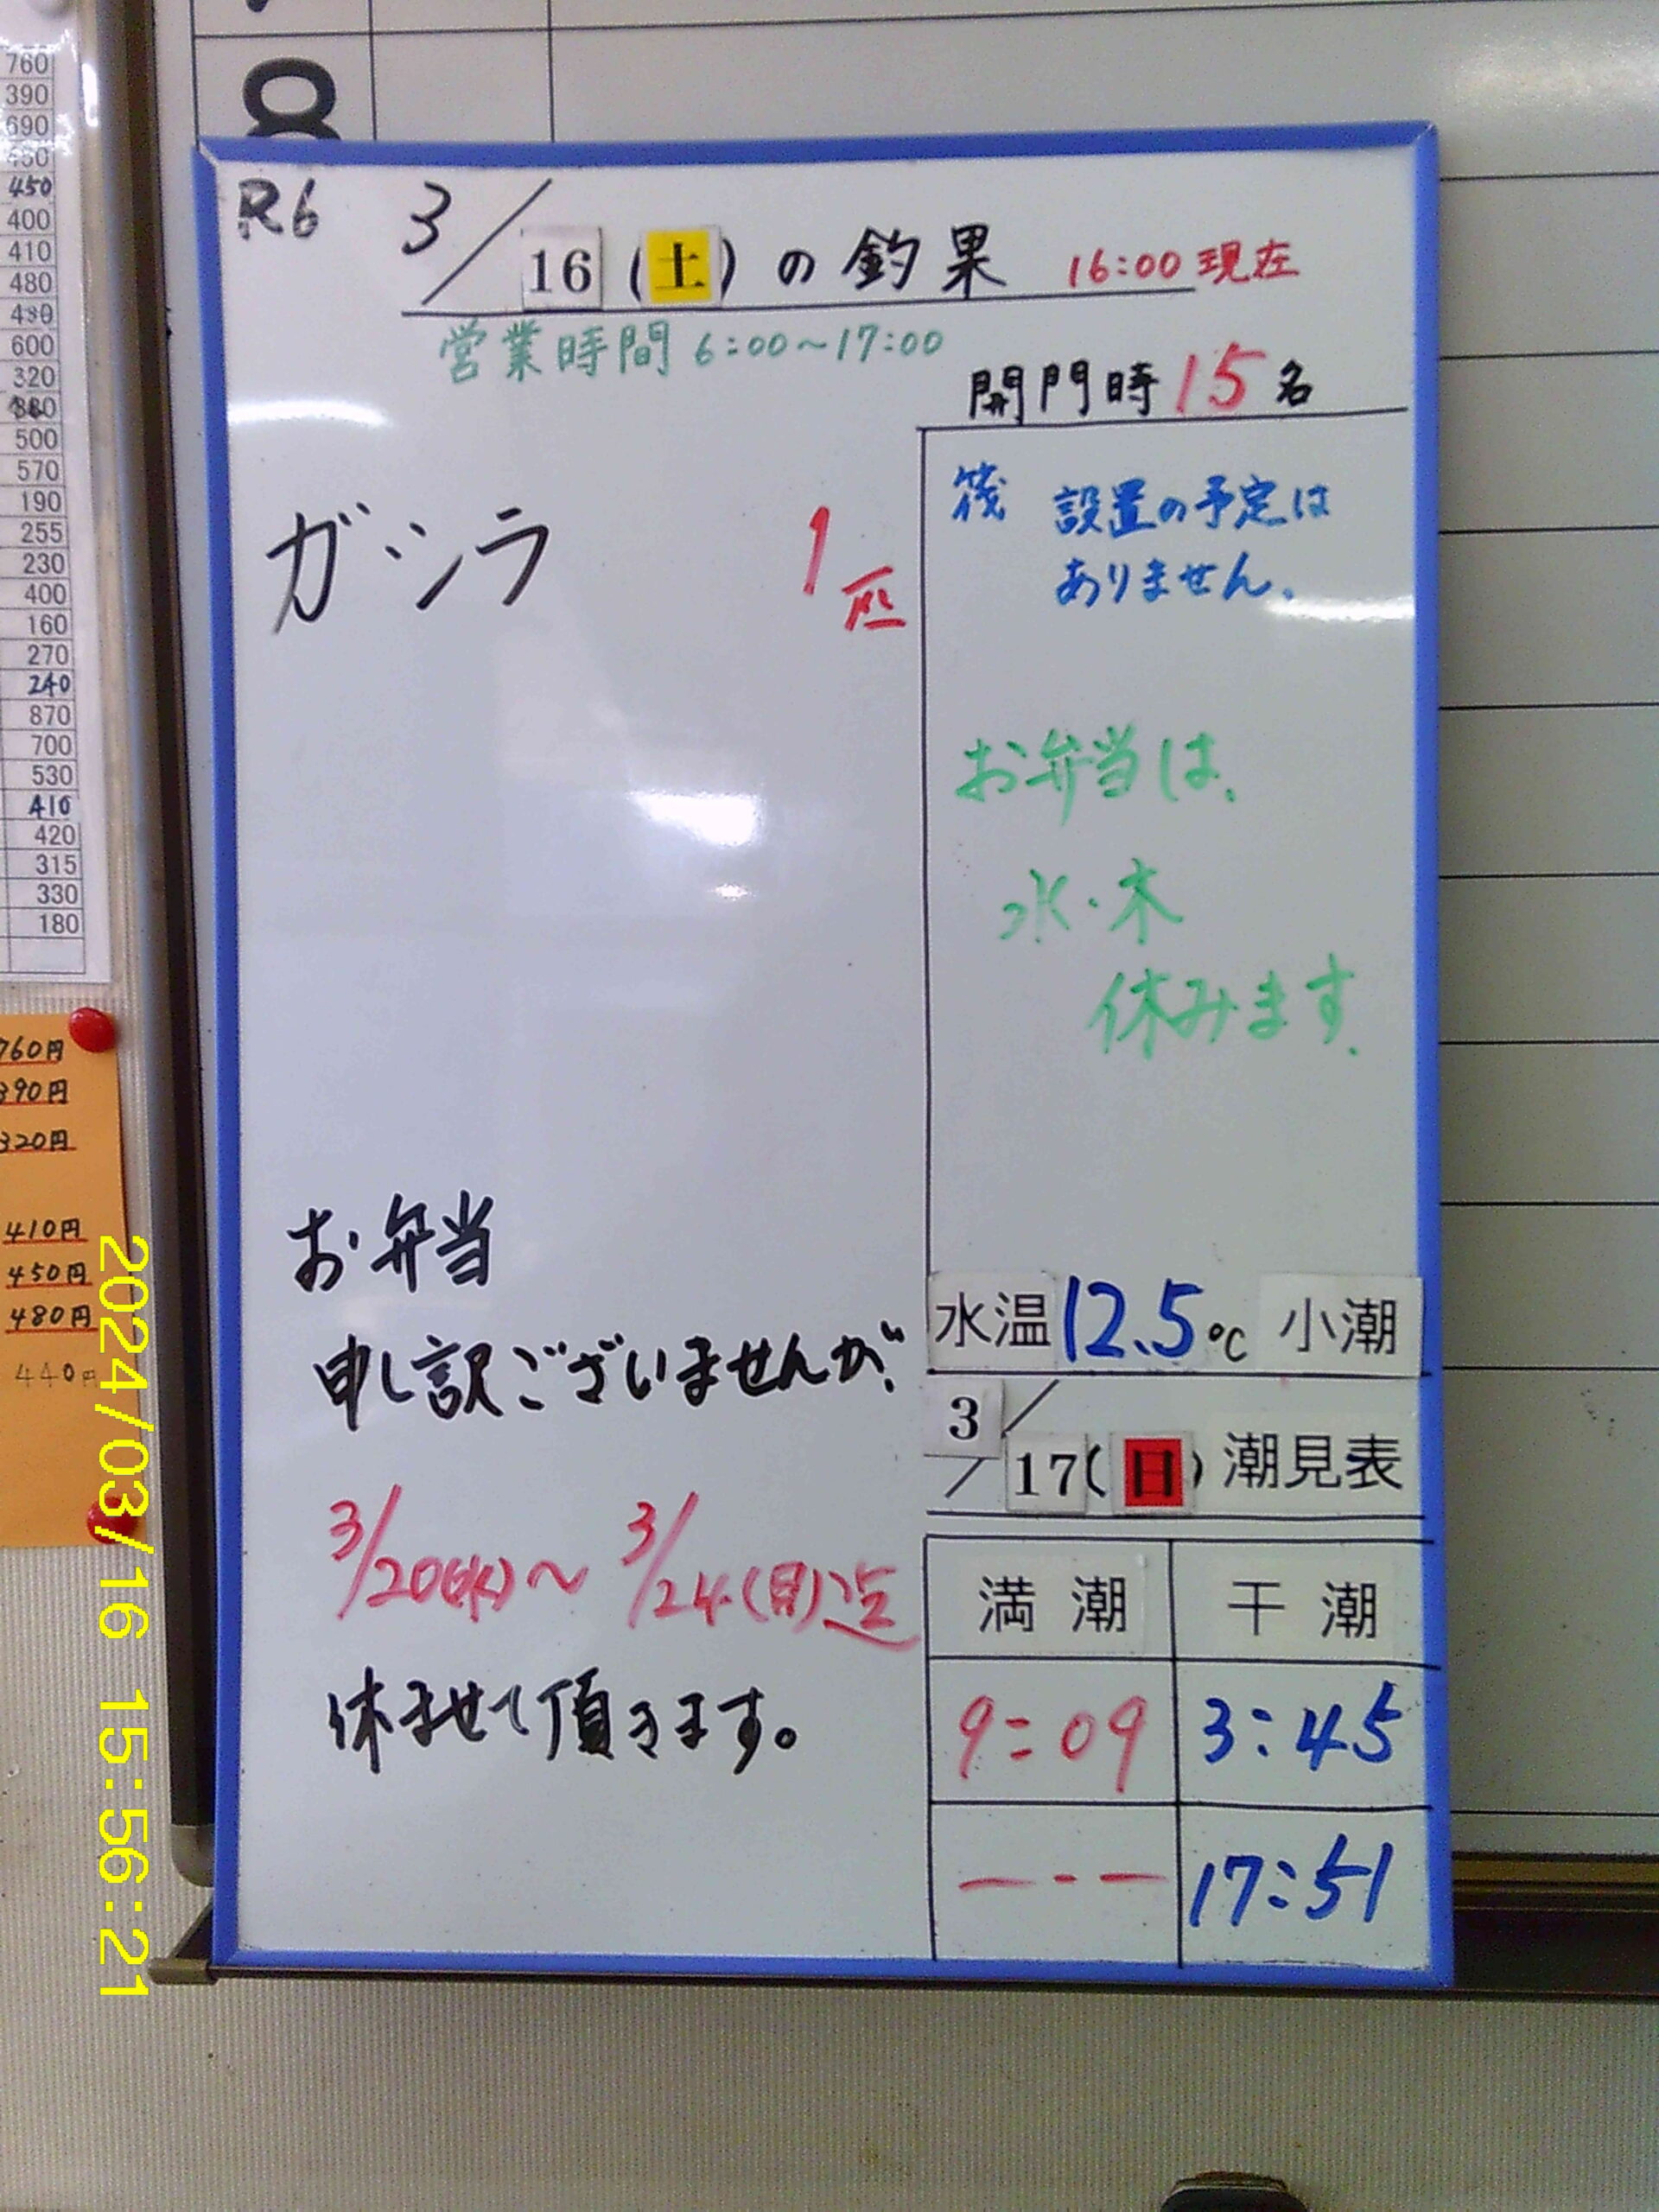 760
390
690
450
450
400
410
480
490
600
320
500
570
190
255
230
400
160
270
240
870
700
530
410
420
315
330
180
760円
390円
320円
410円
450円
480円
440円
8
R6 3/16(土)の釣果 16:00現在
営業時間 6:00~17:00
開門時15名
ガシラ 1匹
筏 設置の予定は
ありません。
お弁当は、
水・木
休みます.
お弁当
申し訳ございませんが、
3/20(水)~3/24(日)迄
休ませて頂きます。
水温12.5℃ 小潮
3/17(日)潮見表
満潮 干潮
9:09 3:45
--- 17:51
2024/03/16 15:56:21